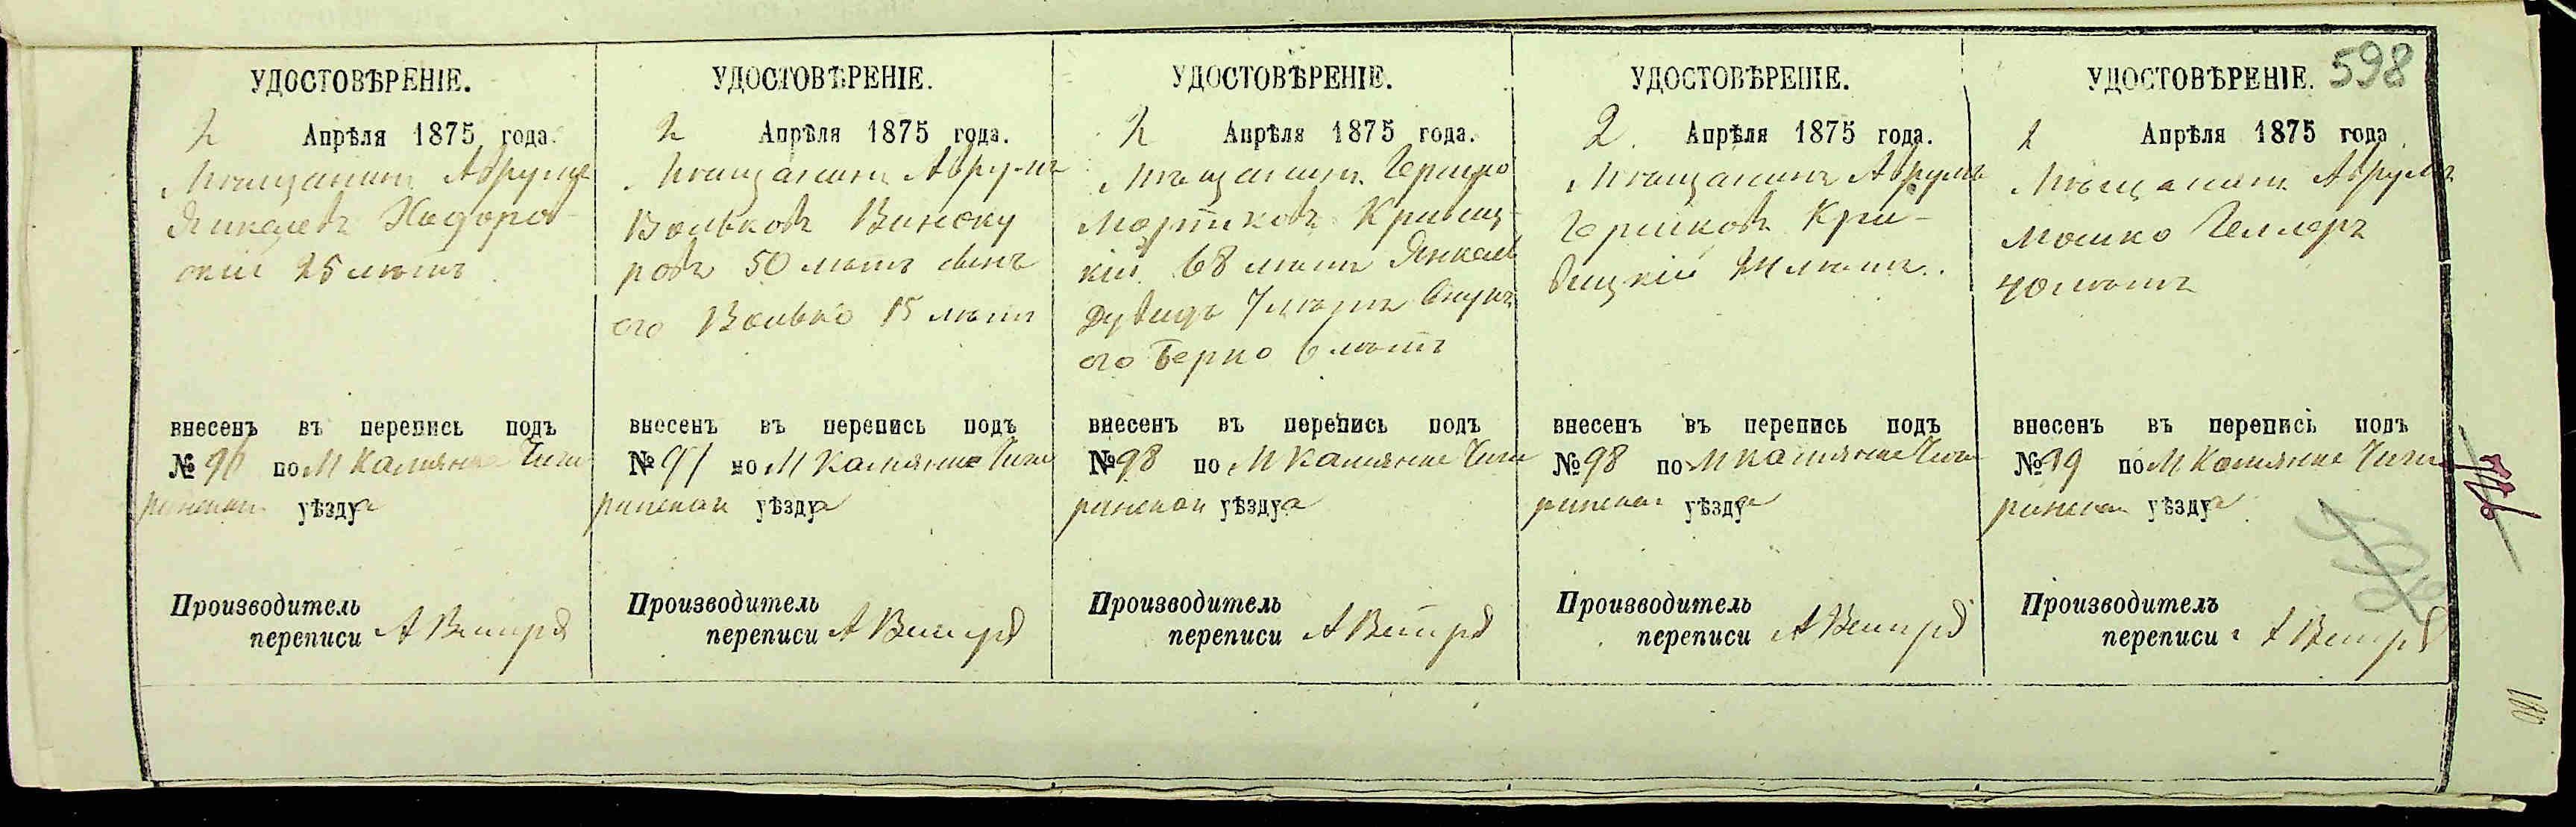 598
УДОСТОВѢРЕНІЕ.
2 Апрѣля 1875 года.
Мѣщанинъ Аврумъ
Янкелевъ Ходоров-
скій 25 лѣтъ
внесенъ въ перепись подъ
№ 96 по М Камянке Чиги
ринскаго уѣзда
Производитель
переписи А
УДОСТОВѢРЕНІЕ.
2 Апрѣля 1875 года.
Мѣщанинъ Аврумъ
Вольковъ Виноку
ровъ 50 лѣтъ сынъ
его Волько 15 лѣтъ
внесенъ въ перепись подъ
№ 97 по М Камянке Чиги
ринскаго уѣзда
Производитель
переписи А
УДОСТОВѢРЕНІЕ.
2 Апрѣля 1875 года.
Мѣщанинъ Гершко
Мортковъ Кривиц-
кій 68 лѣтъ Янкель
Дувидъ 7 лѣтъ внукъ
его Берко 6 лѣтъ
внесенъ въ перепись подъ
№ 98 по М Камянке Чиги
ринскаго уѣзда
Производитель
переписи А
УДОСТОВѢРЕНІЕ.
2 Апрѣля 1875 года.
Мѣщанинъ Аврумъ
Гершковъ Кри-
вицкій лѣтъ
внесенъ въ перепись подъ
№ 98 по М Камянке Чиги
ринскаго уѣзда
Производитель
переписи А
УДОСТОВѢРЕНІЕ.
2 Апрѣля 1875 года
Мѣщанинъ Аврумъ
Мошко Геллеръ
40 лѣтъ
внесенъ въ перепись подъ
№ 99 по М Камянке Чиги
ринскаго уѣзда
Производитель
переписи А